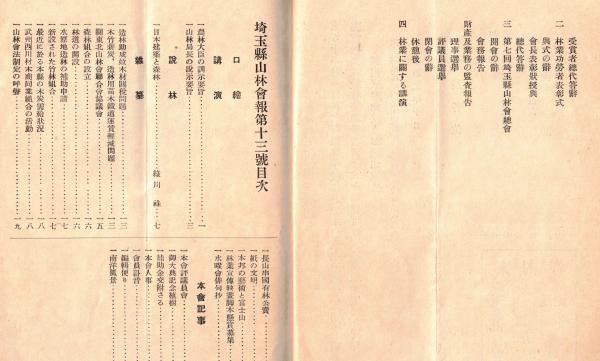 受賞者總代答辭
二 林業功勞者表彰式
典式の辭
會長表彰狀授與
總代答辭
三 第七回埼玉縣山林會總會
開會の辭
會務報告
財產及業務の監查報告
理事選擧
評議員選擧
閉會の辭
休憩後
四 林業に關する講演
埼玉縣山林會報第十三號目次
口繪
講演
一農林大臣の訓示要旨…一
一山林局長の訓示要旨…三
說林
一日本建築と森林…綠川 祿…七
雜纂
一造林助成並木材關稅問題…三
一木竹薪炭造林用苗木鐵道運賃輕減問題…三
一關東北山林會聯合會協議會…五
一森林組合の設立…六
一林道の開設…六
一水原地造林の補助申請…七
一新設された竹林組合…七
一最近に於る本縣の木炭需給狀況…八
一武州西川材木商同業組合の活動…八
一山林會法制定の呼聲…九
一長山串國有林公賣
一紙の文明
一本邦の藝術と富士山
一林業宣傳映畫脚本懸賞募集
一水曜會俳句抄
本會記事
一本會評議員會
一御大典記念植樹
一補助金交附さる
一本會人事
一會員訃音
一編輯便り
一南洋風景